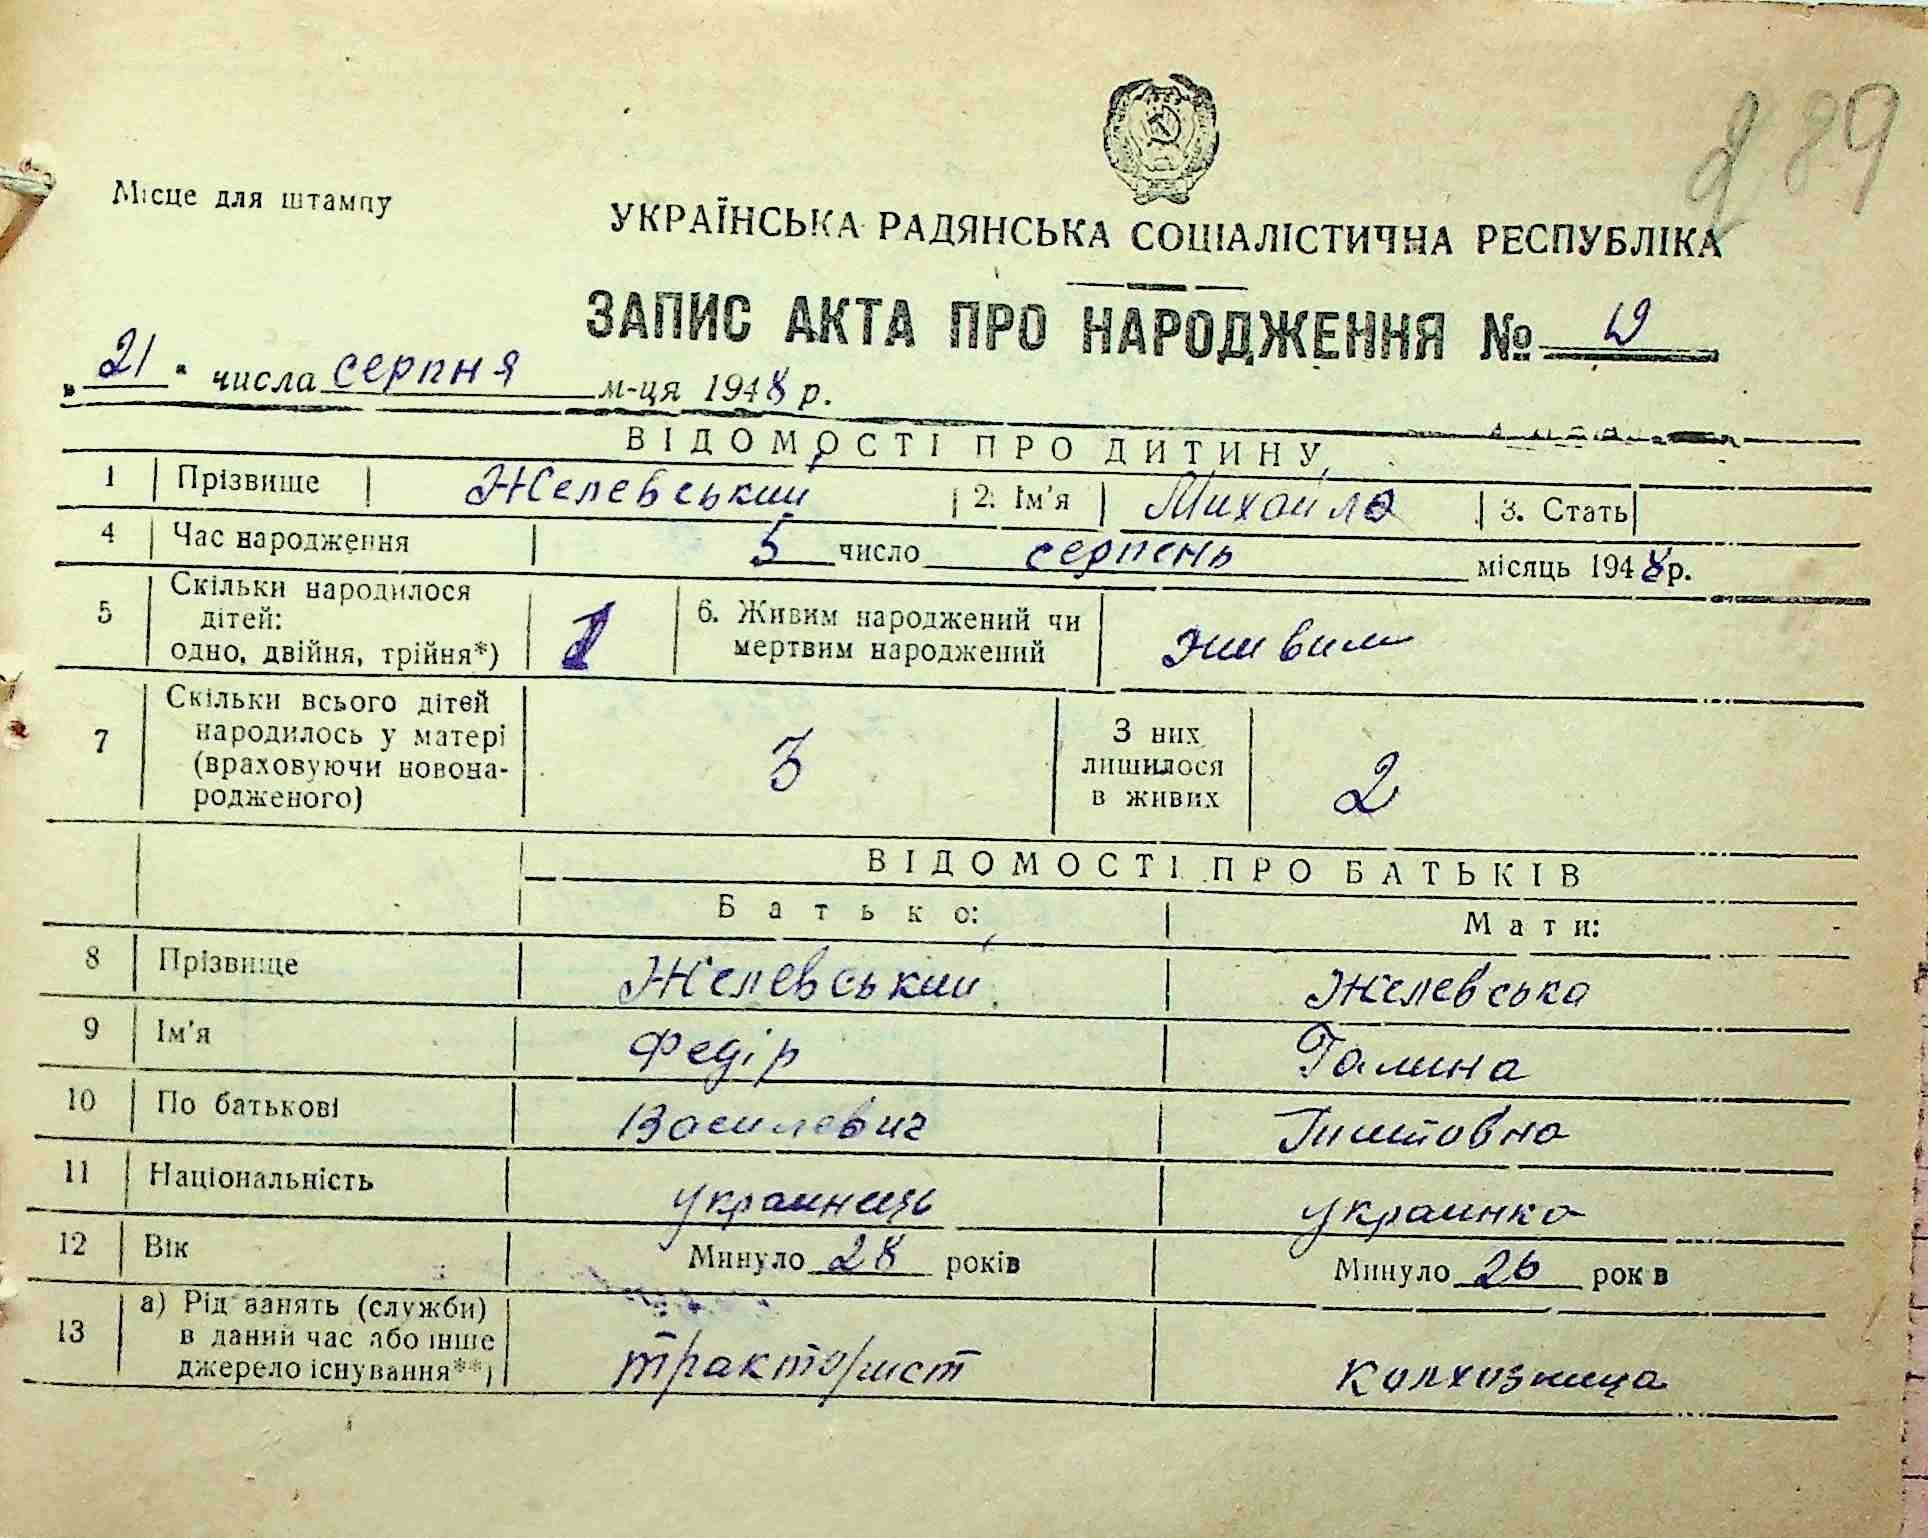 289
Місце для штампу
УКРАЇНСЬКА РАДЯНСЬКА СОЦІАЛІСТИЧНА РЕСПУБЛІКА
ЗАПИС АКТА ПРО НАРОДЖЕННЯ №
„21" числа серпня м-ця 1948 р.
ВІДОМОСТІ ПРО ДИТИНУ
1 Прізвище Желевський 2. Ім'я Михайло 3. Стать
4 Час народження 5 число серпень місяць 1948 р.
5 Скільки народилося дітей: одно, двійня, трійня*) 1 6. Живим народжений чи мертвим народжений живим
7 Скільки всього дітей народилось у матері (враховуючи новонародженого) 3 З них лишилося в живих 2
ВІДОМОСТІ ПРО БАТЬКІВ
Батько: Мати:
8 Прізвище Желевський Желевська
9 Ім'я Федір Галина
10 По батькові Василевич
11 Національність украинець украинка
12 Вік Минуло 28 років Минуло 26 рок в
13 а) Рід занять (служби) в даний час або інше джерело існування**) тракторист колхозница